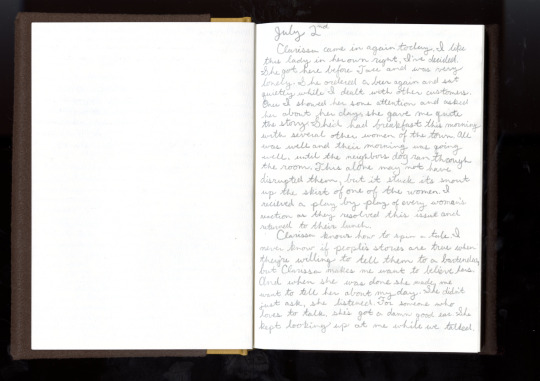 July 2nd
Clarissa came in again today. I like
this lady in her own right, I've decided.
She got here before Tues and was very
lonely. She ordered a beer again and sat
quietly while I dealt with other customers.
Once I showed her some attention and asked
her about her day, she gave me quite
the story. She'd had breakfast this morning
with several other women of the town. All
was well and their morning was going
well, until the neighbors dog ran through
the room. This alone may not have
disrupted them, but it stuck its snout
up the skirt of one of the women. I
recieved a play by play of every woman's
reaction as they resolved this issue and
returned to their lunch.
Clarissa knows how to spin a tale. I
never know if people's stories are true when
they're willing to tell them to a bartender,
but Clarissa makes me want to believe hers.
And when she was done she made me
want to tell her about my day. She didn't
just ask, she listened. For someone who
loves to talk, she's got a damn good ear. She
kept looking up at me while we talked.